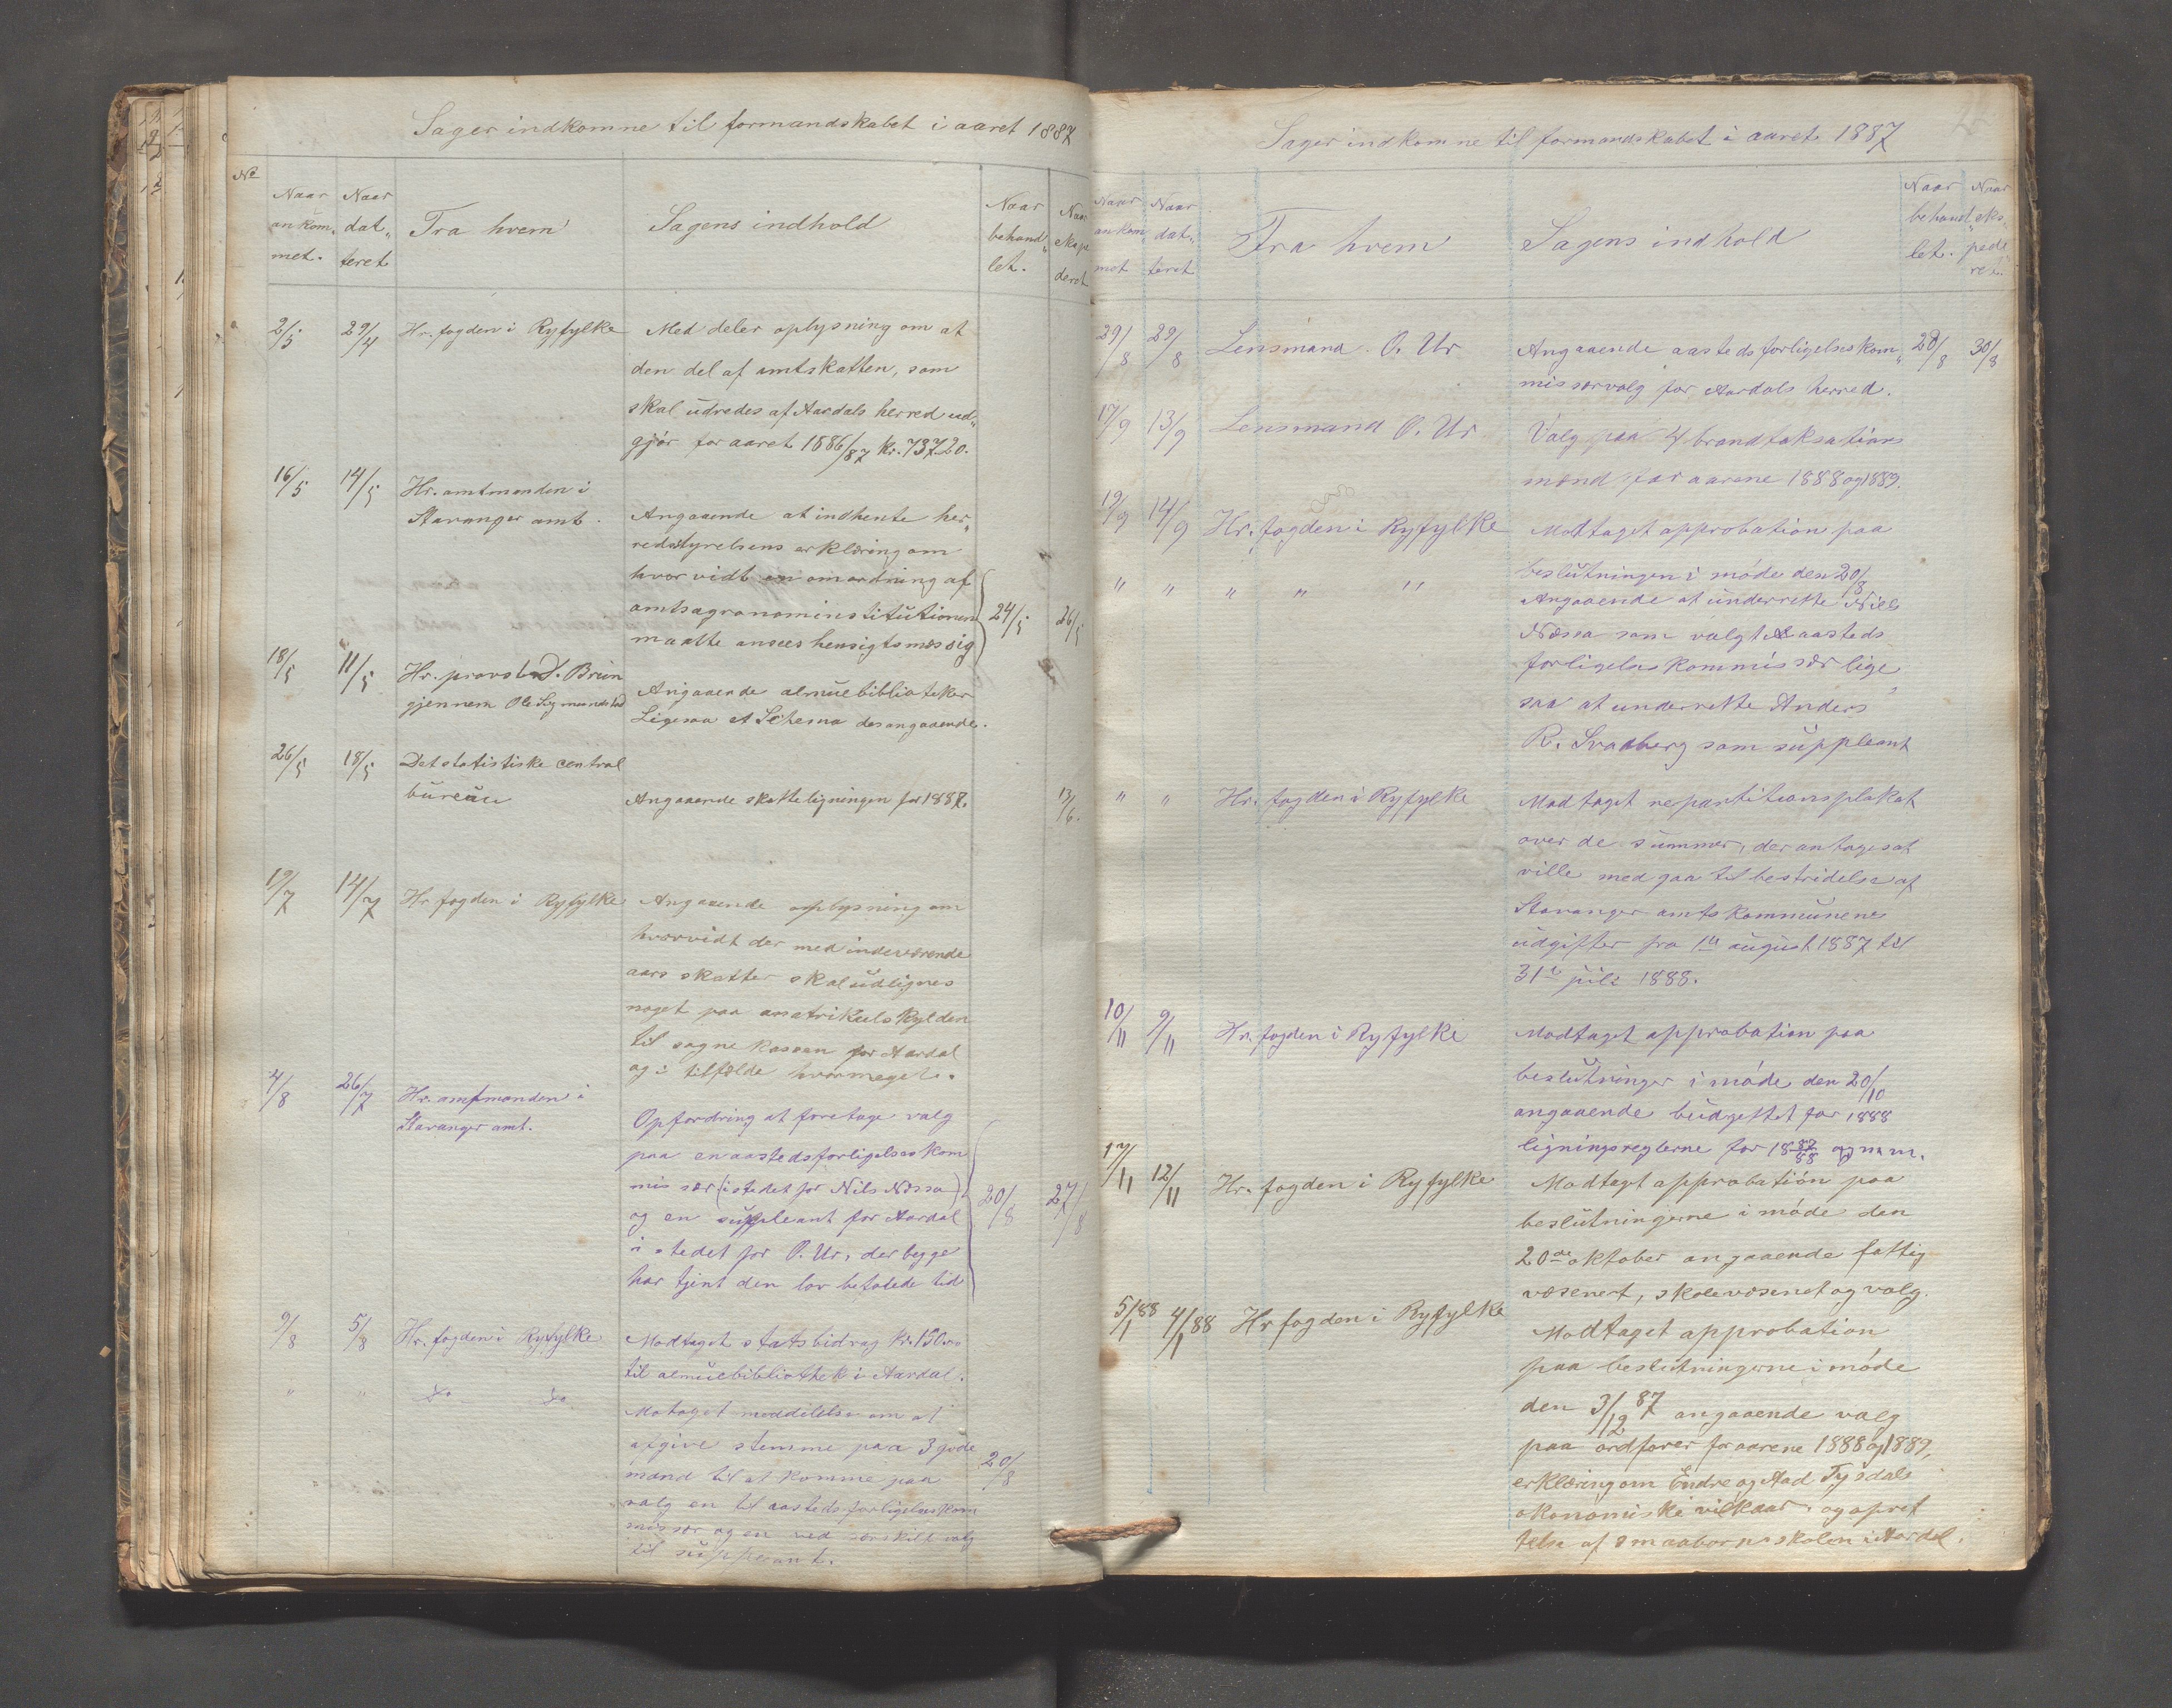 Sager indkomne til formandskabet i aaret 1887
No
Naar ankom„ met.
Naar dat„ teret
Fra hvem
Sagens indhold
Naar behand„ let.
Naar ekspe deret
2/5 29/4 Hr. fogden i Ryfylke Med deler oplysning om at
den del af amtskatten, som
skal udredes af Aardals herred ud„
gjör for aaret 1886/87 kr. 737.20.
16/5 14/5 Hr. amtmanden i
Stavanger amt.
Angaaende at indhente her„
redsstyrelsens erklæring om
hvor vidt en omordning af
amtsagronominstitutionen 24/5 26/5
maatte ansees hensigtsmæssig
18/5 11/5 Hr. provst J. Brun
gjennem Ole Sigmundstad
Angaaende almuebiblioteker
Ligesaa et Schema desangaaende.
26/5 18/5 Det statistiske central
bureau
Angaaende skatteligningen for 1887. 13/6.
19/7 14/7 Hr fogden i Ryfylke Angaaende oplysning om
hvorvidt der med indeværende
aars skatter skal udlignes
noget paa matrikulskylden
til sognekassen for Aardal
og i tilfælde hvormeget.
4/8 26/7 Hr. amtmanden i
Stavanger amt.
Opfordring at foretage valg
paa en aastedsforligelseskom
missær (istedet for Nils Nessa)
og en suppleant for Aardal 20/8 27/8
i stedet for O. Ur, der begge
har tjent den lov befalede tid
9/8 5/8 Hr. fogden i Ryfylke Modtaget statsbidrag kr. 150.00
til almuebibliothek i Aardal.
" " Do Do
Motaget meddelelse om at
afgive stemme paa 3 gode
mænd til at komme paa 20/8
valg en til aasteds forligelseskom
missær og en ved særskilt valg
til suppleant.
Sager indkomne til formandskabet i aaret 1887
Naar ankom„ met
Naar dat„ teret
Fra hvem
Sagens indhold
Naar behand„ let.
Naar eks„ pede ret.
29/8 29/8 Lensmand O. Ur Angaaende aastedsforligelseskom„ 28/8 30/8
missærvalg for Aardals herred.
17/9 13/9 Lensmand O. Ur Valg paa 4 brandtaksations
mænd for aarene 1888 og 1889.
19/9 14/9 Hr. fogden i Ryfylke Modtaget approbation paa
beslutningen i möde den 20/8
" " " " " Angaaende at underrette Niels
Nessa som valgt aasteds
forligelses kommissær lige
saa at underrette Anders
R. Svadberg som suppleant
" " Hr. fogden i Ryfylke Modtaget repartitionsplakat
over de summer, der antages at
ville medgaa til bestridelse af
Stavanger amtskommunenes
udgifter fra 1te august 1887 til
31te juli 1888.
10/11 9/11 Hr. fogden i Ryfylke Modtaget approbation paa
beslutninger i möde den 20/10
angaaende budgettet for 1888
ligningsreglerne for 1887/88 og m. m.
17/11 12/11 Hr. fogden i Ryfylke Modtaget approbation paa
beslutningerne i möde den
20de oktober angaaende fattig
væsenet, skolevæsenet og valg.
5/1 88 4/1 88 Hr fogden i Ryfylke
Modtaget approbation
paa beslutningerne i möde
den 3/12 87 angaaende valg
paa ordfører for aarene 1888 og 1889,
erklæring om Endre og Aad Tysdals
økonomiske vilkaar. og opret
telse af smaabørnsskolen i Aardal.